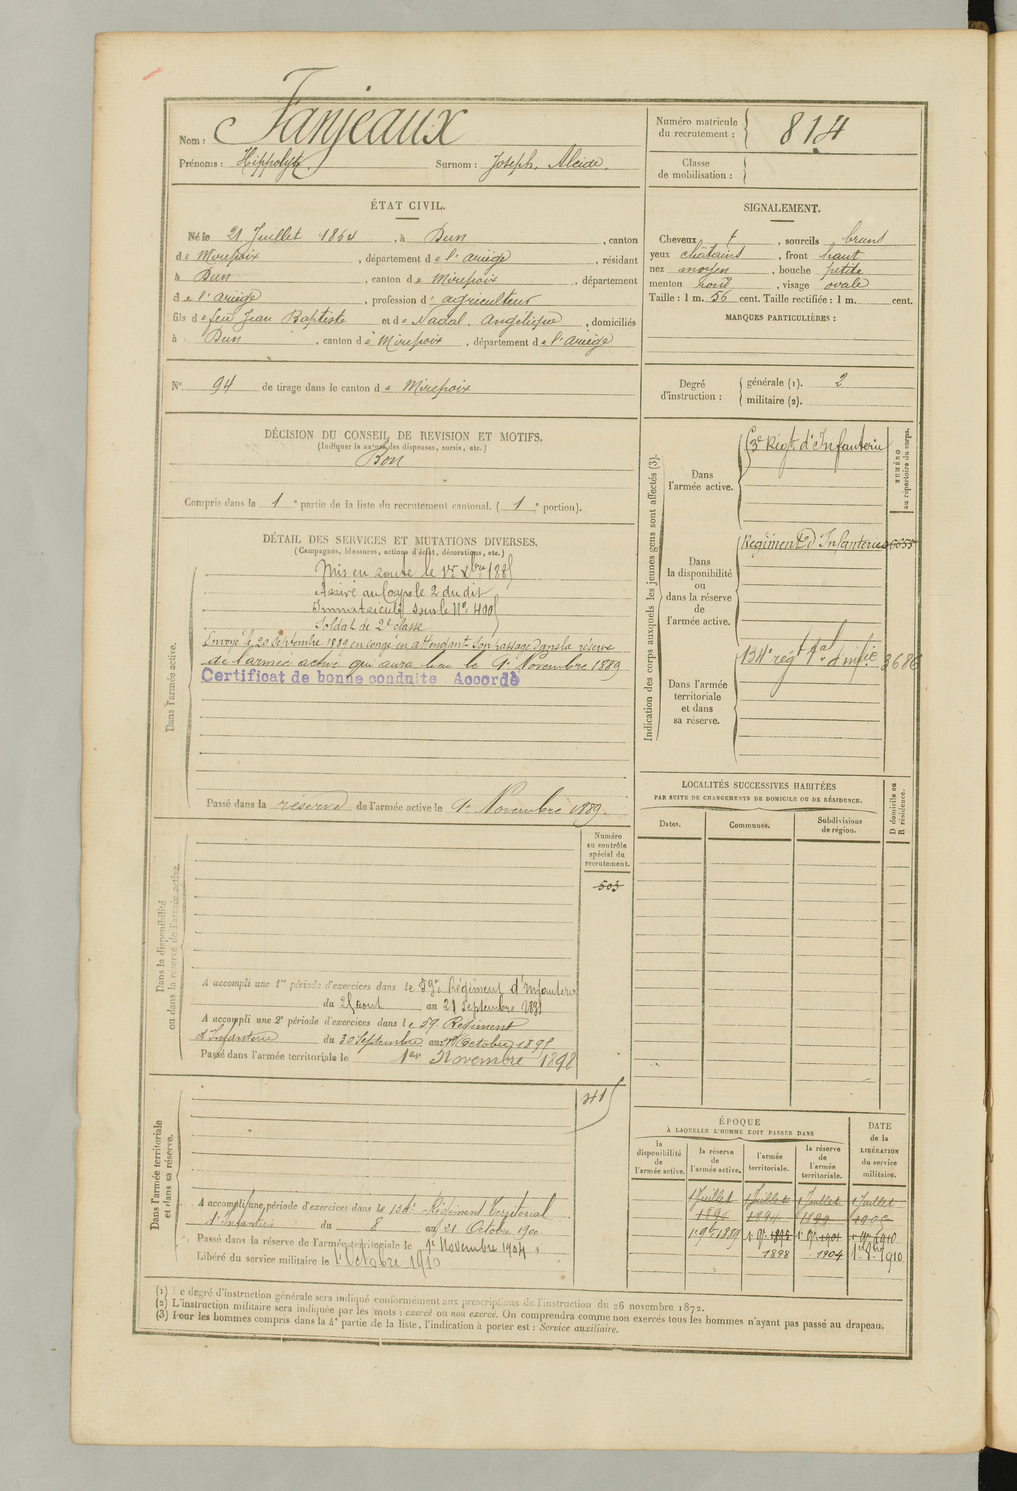 Nom : Fanjeaux
Prénoms : Hippolyte Surnom : Joseph, Alcide.
Numéro matricule du recrutement : 814
Classe de mobilisation :
ÉTAT CIVIL.
Né le 21 Juillet 1864, à Dun, canton
de Mirepoix, département de l'ariège, résidant
à Dun, canton de Mirepoix, département
de l'ariège, profession d'agriculteur
fils de feu Jean Baptiste et de Nadal, Angélique, domiciliés
à Dun, canton de Mirepoix, département de l'ariège
N° 94 de tirage dans le canton de Mirepoix
SIGNALEMENT.
Cheveux t, sourcils bruns
yeux châtains, front haut
nez moyen, bouche petite
menton rond, visage ovale
Taille : 1 m. 56 cent. Taille rectifiée : 1 m. cent.
MARQUES PARTICULIÈRES :
Degré d'instruction : générale (1). 2
militaire (2).
DÉCISION DU CONSEIL DE REVISION ET MOTIFS.
(Indiquer la nature des dispenses, sursis, etc.)
Bon
Compris dans la 1e partie de la liste du recrutement cantonal. (1e portion).
DÉTAIL DES SERVICES ET MUTATIONS DIVERSES.
(Campagnes, blessures, actions d'éclat, décorations, etc.)
Dans l'armée active.
Mis en route le 1er Xbre 1885
Arrivé au Corps le 2 du dit
Immatriculé sous le N° 4005
Soldat de 2e classe
Envoyé le 20 Septembre 1889 en congé en attendant son passage dans la réserve
de l'armée active qui aura lieu le 1er Novembre 1889
Certificat de bonne conduite Accordé
Passé dans la réserve de l'armée active le 1er Novembre 1889.
Indication des corps auxquels les jeunes gens sont affectés (3).
NUMÉRO au répertoire du corps.
Dans l'armée active.
Régt d'Infanterie
Dans la disponibilité ou dans la réserve de l'armée active.
Régiment d'Infanterie
Dans l'armée territoriale et dans sa réserve.
134e régt tal d'infie 3686
LOCALITÉS SUCCESSIVES HABITÉES
PAR SUITE DE CHANGEMENTS DE DOMICILE OU DE RÉSIDENCE.
Dates. Communes. Subdivisions de région.
D domicile ou R résidence.
Dans la disponibilité ou dans la réserve de l'armée active.
Numéro au contrôle spécial du recrutement.
503
A accompli une 1re période d'exercices dans le 59e Régiment d'Infanterie
du 25 aout au 21 Septembre
A accompli une 2e période d'exercices dans le 59e Régiment
d'Infanterie du 30 Septembre au Octobre 1895
Passé dans l'armée territoriale le 1er Novembre 1898
Dans l'armée territoriale et dans sa réserve.
A accompli une période d'exercices dans le 134e Régiment Territorial
d'Infanterie du 8 au 21 Octobre 1900
Passé dans la réserve de l'armée territoriale le 1er Novembre 1904
Libéré du service militaire le 1er Octobre 1910
ÉPOQUE
À LAQUELLE L'HOMME DOIT PASSER DANS
la disponibilité de l'armée active.
la réserve de l'armée active.
l'armée territoriale.
la réserve de l'armée territoriale.
DATE de la LIBÉRATION du service militaire.
1 Juillet 1 Juillet 1 Juillet 1 Juillet
1er 9bre 1889
1898 1904 1910
(1) Le degré d'instruction générale sera indiqué conformément aux prescriptions de l'instruction du 26 novembre 1872.
(2) L'instruction militaire sera indiquée par les mots : exercé ou non exercé. On comprendra comme non exercés tous les hommes n'ayant pas passé au drapeau.
(3) Pour les hommes compris dans la 4e partie de la liste, l'indication à porter est : Service auxiliaire.